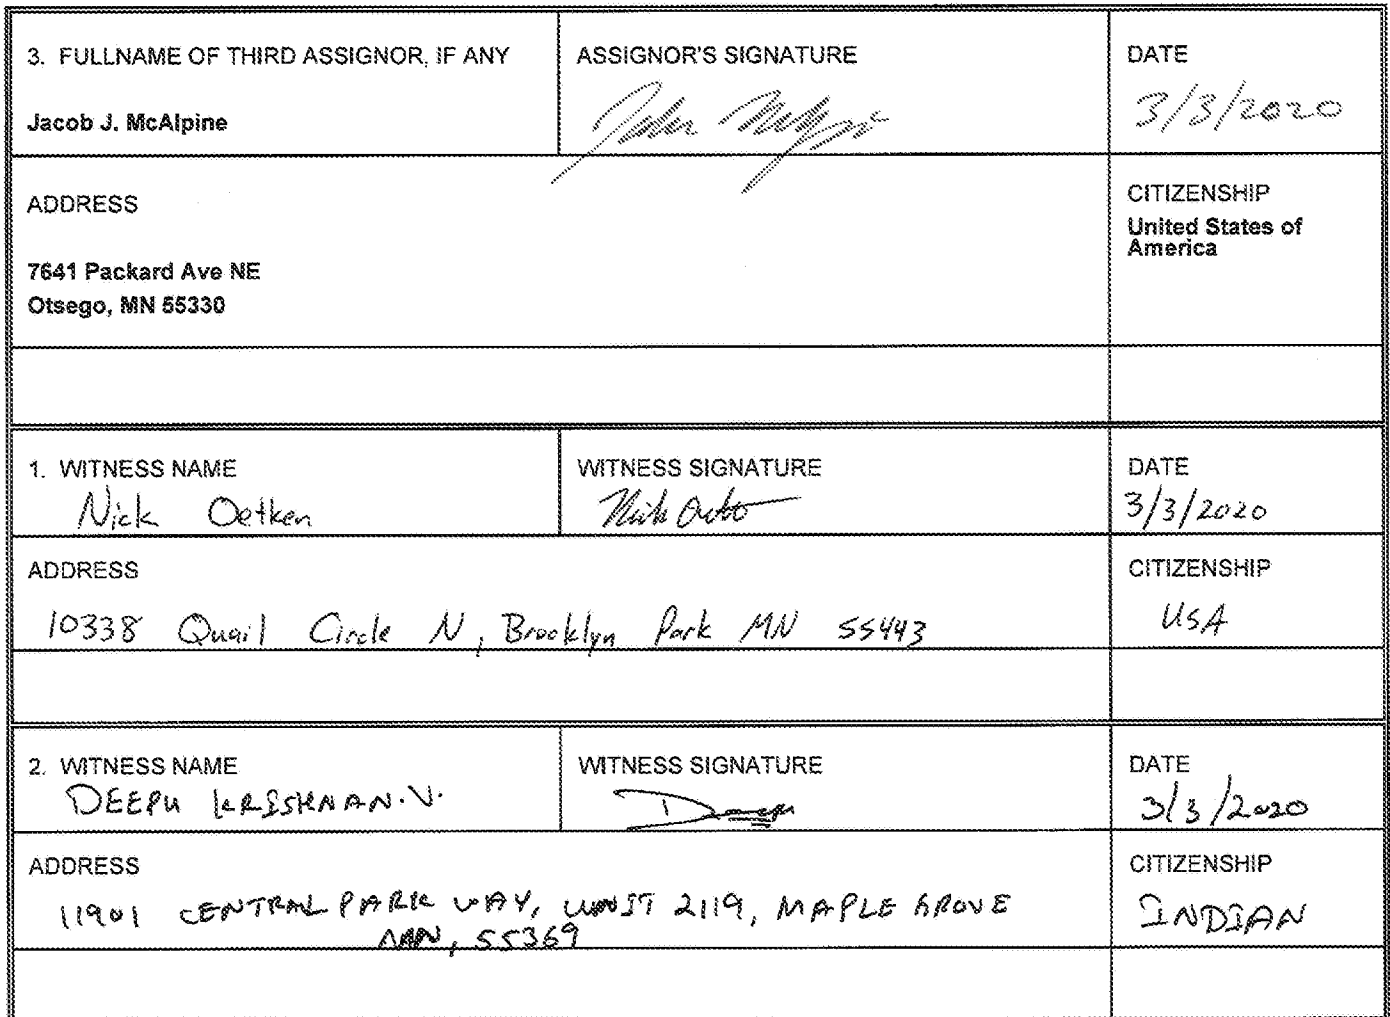 3. FULLNAME OF THIRD ASSIGNOR, IF ANY
Jacob J. McAlpine
ASSIGNOR'S SIGNATURE
DATE
3/3/2020
ADDRESS
7641 Packard Ave NE
Otsego, MN 55330
CITIZENSHIP
United States of
America
1. WITNESS NAME
Nick Oetken
WITNESS SIGNATURE
DATE
3/3/2020
ADDRESS
10338 Quail Circle N, Brooklyn Park MN 55443
CITIZENSHIP
USA
2. WITNESS NAME
DEEPU KRISHNAN.V.
WITNESS SIGNATURE
DATE
3/3/2020
ADDRESS
11901 CENTRAL PARK WAY, UNIT 2119, MAPLE GROVE
MN, 55369
CITIZENSHIP
INDIAN